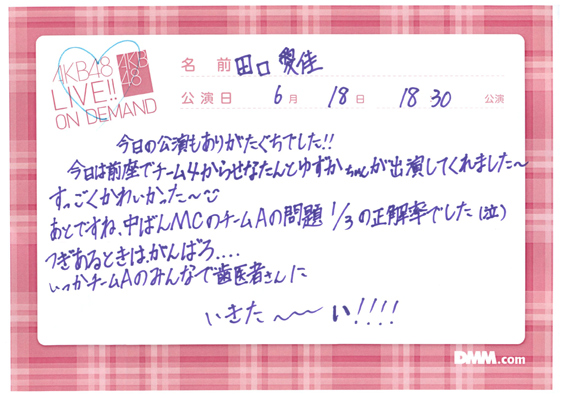 AKB48
LIVE!!
ON DEMAND
AKB
48
名 前 田口 愛佳
公演日 6月 18日 18 30 公演
今日の公演もありがたぐちでした!!
今日は前座でチーム4からせなたんとゆずかちゃんが出演してくれました〜
すっごくかわいかった〜
あとですね、中ばんMCのチームAの問題 1/3の正解率でした(泣)
つぎあるときは、がんばろ....
いつかチームAのみんなで歯医者さんに
いきた〜〜い!!!!
DMM.com